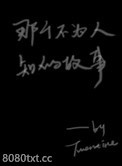 那个不为人
知的故事
——by
Twentine
8080txt.cc